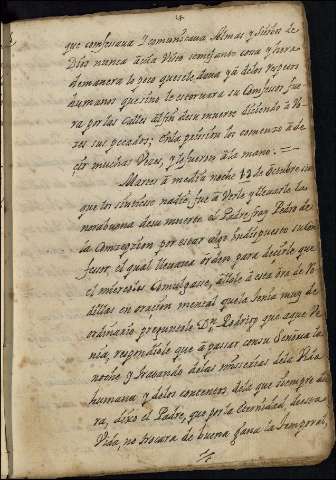 que confessaua I comunicaua Almas y Sieruos de
Dios nunca auia visto semejante cosa y era
demanera lo poco que se le daua ya delos respetos
humanos que sino le estoruara su Confesor fue
ra por las Calles asta desu muerte diciendo a Vo
zes sus peccados; en la prision los comenzo a de
çir muchas Vezes, y le fueron a la mano. =
Martes a media noche 19 de Octubre sin
que los sintiese nadie, fue a Verle y lleuarle la
norabuena desu muerte el Padre fray Pedro de
la Conzepzion por estar algo indispuesto su Con
fesor, el qual lleuaua orden para decirle que
el miercoles Comulgasse, allole a esta ora de Ro
dillas en oracion mental que la tenia muy de
ordinario preguntole Dn. Rodrigo que aque Ve
nia, respondiole que a passar con su Señoria la
noche y tratando delas miserias desta Vida
humana y delos contentos dela que siempre du
ra, dixo el Padre, que por la eternidad de essa
Vida, no trocara de buena gana la temporal,